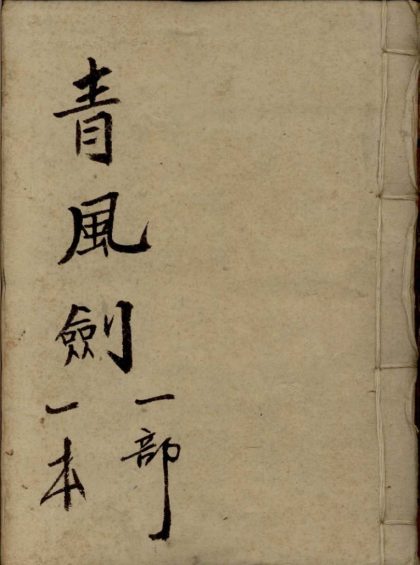 青風劍一部
一本